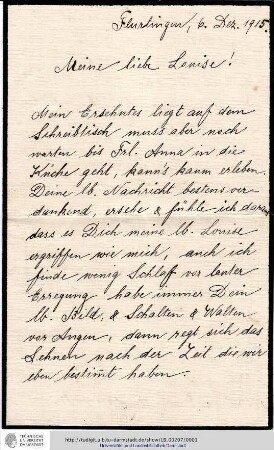 Flurlingen, 6. Dez. 1915.
Meine liebe Louise!
Mein Ersehntes liegt auf dem
Schreibtisch muss aber noch
warten bis Frl. Anna in die
Küche geht, kann's kaum erleben.
Deine lb. Nachricht bestens ver-
dankend, ersehe & fühle ich daraus
dass es Dich meine lb. Louise
ergriffen wie mich, auch ich
finde wenig Schlaf vor lauter
Erregung habe immer Dein
lb. Bild, & Schalten & Walten
vor Augen, dann regt sich das
Sehnen nach der Zeit die wir
eben bestimt haben.
TECHNISCHE
UNIVERSITÄT
DARMSTADT
Universitäts- und Landesbibliothek Darmstadt